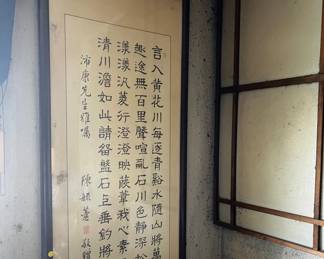 言入黃花川每逐青谿水隨山將萬
趣途無百里聲喧亂石中色靜深松
漾漾汎菱荇澄澄映葭葦我心素
清川澹如此請留盤石上垂釣將
沛康先生雅囑 陳毓 敬贈